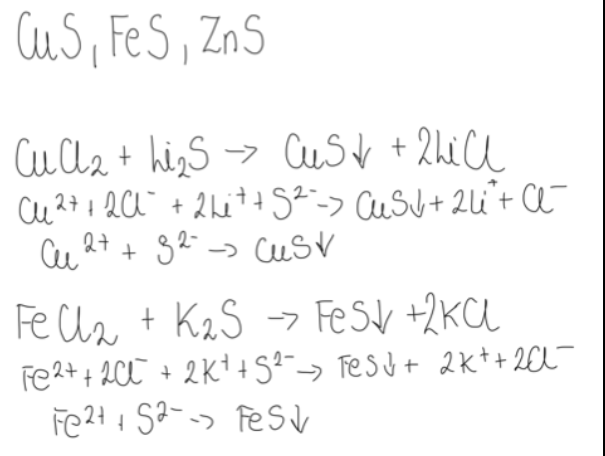 CuS, FeS, ZnS
CuCl₂ + Li₂S → CuS↓ + 2LiCl
Cu²⁺ + 2Cl⁻ + 2Li⁺ + S²⁻ → CuS↓ + 2Li⁺ + Cl⁻
Cu²⁺ + S²⁻ → CuS↓
FeCl₂ + K₂S → FeS↓ + 2KCl
Fe²⁺ + 2Cl⁻ + 2K⁺ + S²⁻ → FeS↓ + 2K⁺ + 2Cl⁻
Fe²⁺ + S²⁻ → FeS↓